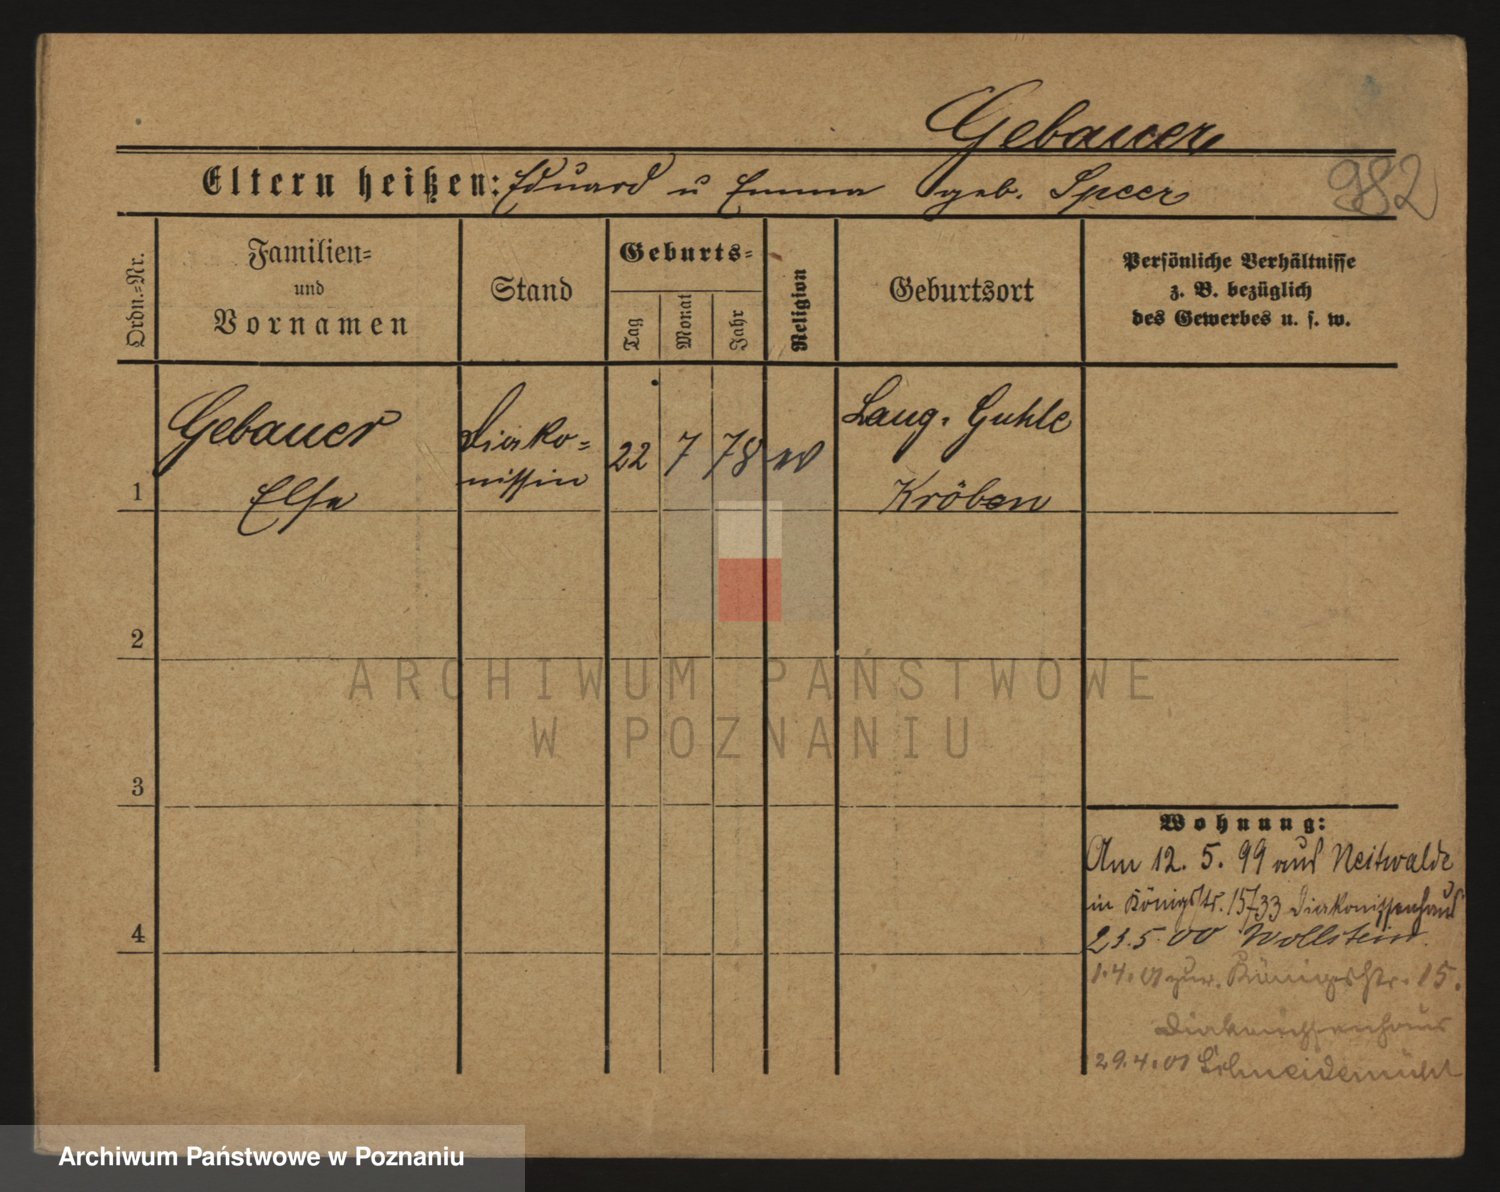 Gebauer
982
Eltern heißen: Eduard u Emma geb. Speer
Ordn.-Nr.
Familien-
und
Vornamen
Stand
Geburts-
Tag
Monat
Jahr
Religion
Geburtsort
Persönliche Verhältnisse
z. B. bezüglich
des Gewerbes u. s. w.
1
Gebauer
Else
Diako-
nissin
22
7
78
ev
Lang. Guhle
Kröben
2
3
4
Wohnung:
Am 12. 5. 99 aus Neitwalde
in Königstr. 15/33 Diakonissenhaus
23.5.00 Wollstein.
1.4.01 zur. Königstr. 15.
Diakonissenhaus
29.4.01 Schneidemühl
ARCHIWUM PAŃSTWOWE
W POZNANIU
Archiwum Państwowe w Poznaniu